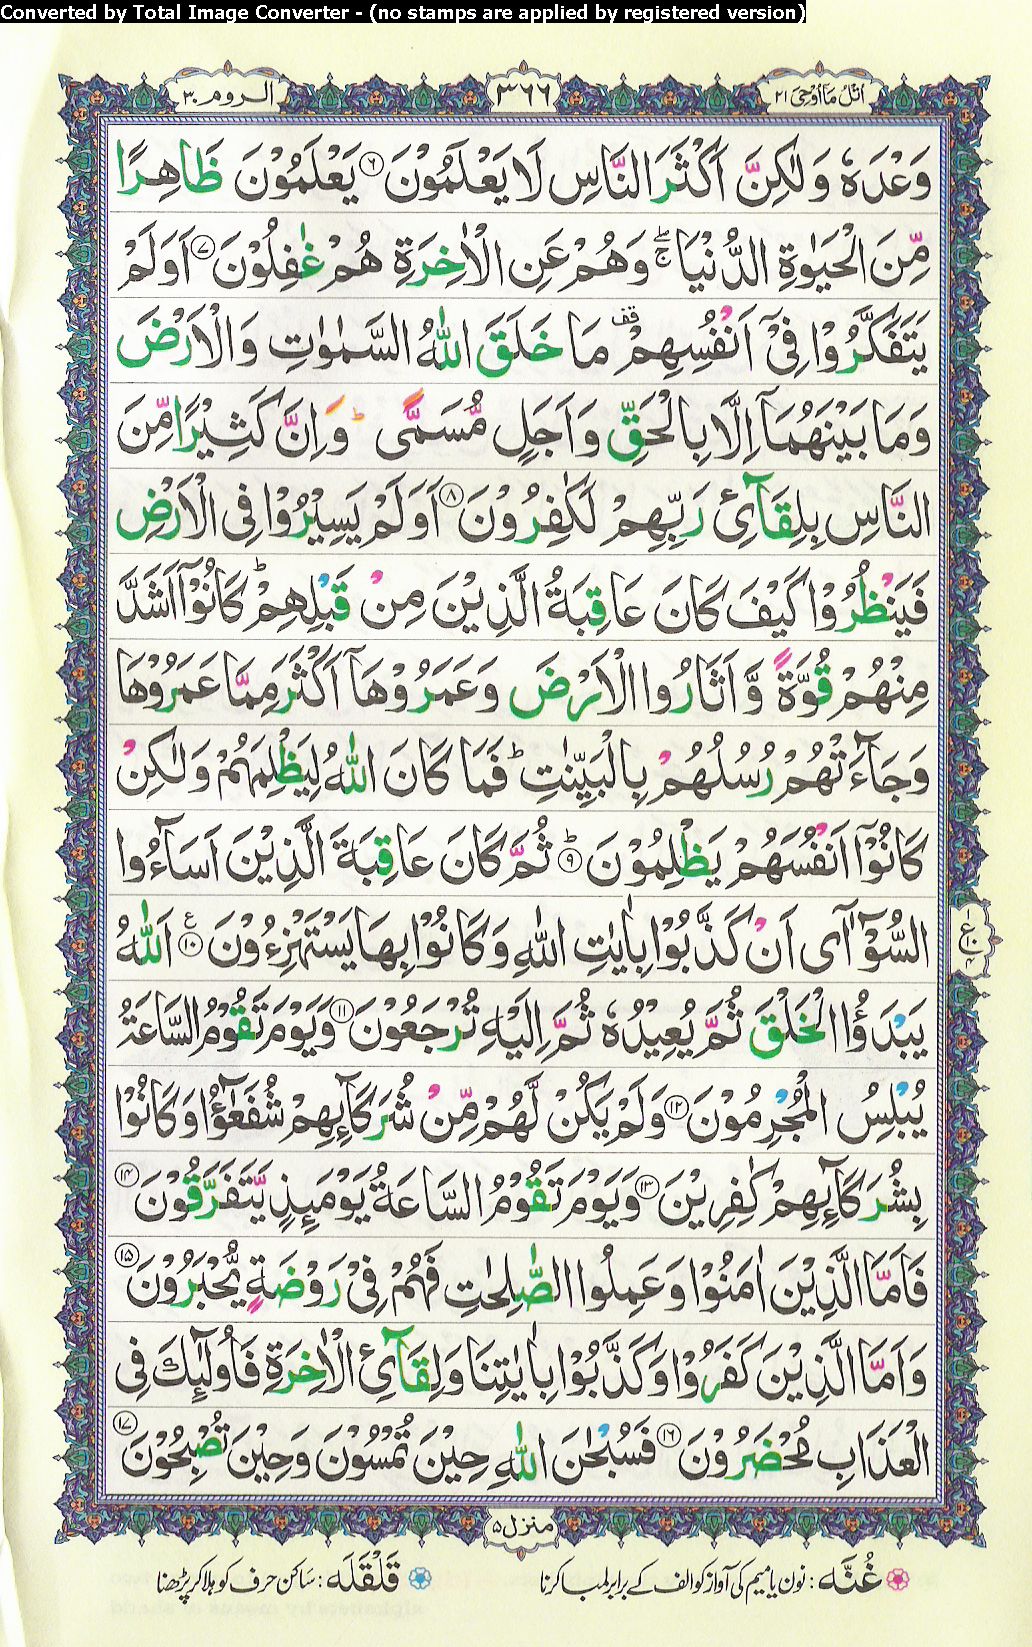 Converted by Total Image Converter - (no stamps are applied by registered version)
اتل ما اوحی ۲۱
۳۶۶
الروم ۳۰
وَعْدَهٗ وَلٰكِنَّ اَكْثَرَ النَّاسِ لَا يَعْلَمُوْنَ ۶ يَعْلَمُوْنَ ظَاهِرًا
مِّنَ الْحَيٰوةِ الدُّنْيَا ۚۖ وَهُمْ عَنِ الْاٰخِرَةِ هُمْ غٰفِلُوْنَ ۷ اَوَلَمْ
يَتَفَكَّرُوْا فِىْٓ اَنْفُسِهِمْ ۫ مَا خَلَقَ اللّٰهُ السَّمٰوٰتِ وَالْاَرْضَ
وَمَا بَيْنَهُمَآ اِلَّا بِالْحَقِّ وَاَجَلٍ مُّسَمًّى ؕ وَاِنَّ كَثِيْرًا مِّنَ
النَّاسِ بِلِقَآئِ رَبِّهِمْ لَكٰفِرُوْنَ ۸ اَوَلَمْ يَسِيْرُوْا فِى الْاَرْضِ
فَيَنْظُرُوْا كَيْفَ كَانَ عَاقِبَةُ الَّذِيْنَ مِنْ قَبْلِهِمْ ؕ كَانُوْٓا اَشَدَّ
مِنْهُمْ قُوَّةً وَّاَثَارُوا الْاَرْضَ وَعَمَرُوْهَآ اَكْثَرَ مِمَّا عَمَرُوْهَا
وَجَآءَتْهُمْ رُسُلُهُمْ بِالْبَيِّنٰتِ ؕ فَمَا كَانَ اللّٰهُ لِيَظْلِمَهُمْ وَلٰكِنْ
كَانُوْٓا اَنْفُسَهُمْ يَظْلِمُوْنَ ؕ ۹ ثُمَّ كَانَ عَاقِبَةَ الَّذِيْنَ اَسَآءُوا
السُّوْٓآٰى اَنْ كَذَّبُوْا بِاٰيٰتِ اللّٰهِ وَكَانُوْا بِهَا يَسْتَهْزِءُوْنَ ۱۰ ع اَللّٰهُ
يَبْدَؤُا الْخَلْقَ ثُمَّ يُعِيْدُهٗ ثُمَّ اِلَيْهِ تُرْجَعُوْنَ ۱۱ وَيَوْمَ تَقُوْمُ السَّاعَةُ
يُبْلِسُ الْمُجْرِمُوْنَ ۱۲ وَلَمْ يَكُنْ لَّهُمْ مِّنْ شُرَكَآئِهِمْ شُفَعٰٓؤُا وَكَانُوْا
بِشُرَكَآئِهِمْ كٰفِرِيْنَ ۱۳ وَيَوْمَ تَقُوْمُ السَّاعَةُ يَوْمَئِذٍ يَّتَفَرَّقُوْنَ ۱۴
فَاَمَّا الَّذِيْنَ اٰمَنُوْا وَعَمِلُوا الصّٰلِحٰتِ فَهُمْ فِىْ رَوْضَةٍ يُّحْبَرُوْنَ ۱۵
وَاَمَّا الَّذِيْنَ كَفَرُوْا وَكَذَّبُوْا بِاٰيٰتِنَا وَلِقَآئِ الْاٰخِرَةِ فَاُولٰٓئِكَ فِى
الْعَذَابِ مُحْضَرُوْنَ ۱۶ فَسُبْحٰنَ اللّٰهِ حِيْنَ تُمْسُوْنَ وَحِيْنَ تُصْبِحُوْنَ ۱۷
ع ۱۰ ۴
منزل ۵
غُنَّه : نون یا میم کی آواز کو الف کے برابر لمبا کرنا
قَلْقَلَه : ساکن حرف کو ہلا کر پڑھنا